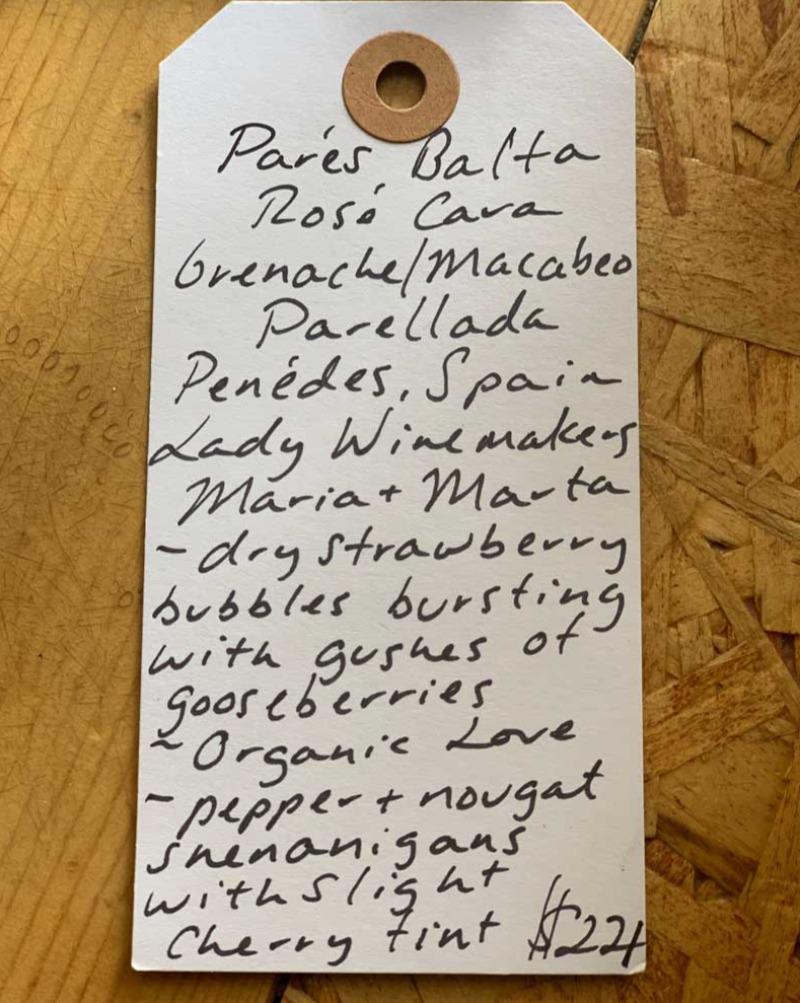 Parés Balta
Rosé Cava
Grenache/Macabeo
Parellada
Penédes, Spain
Lady Winemakers
Maria + Marta
- dry strawberry
bubbles bursting
with gushes of
gooseberries
~ Organic Love
- pepper + nougat
shenanigans
with slight
Cherry tint $22